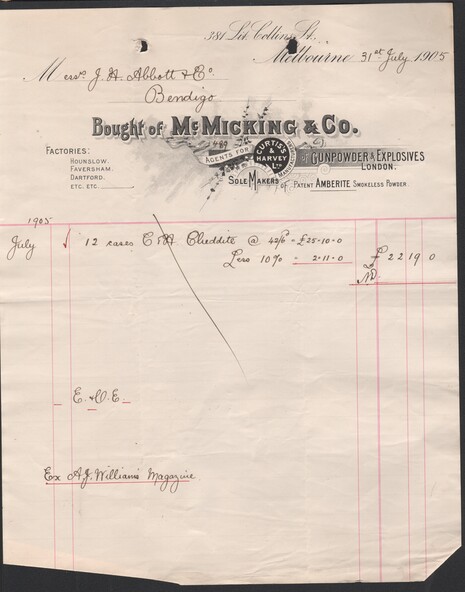 381 Lit. Collins St.
Melbourne 31st July 1905
Messrs J. H. Abbott & Co.
Bendigo
Bought of McMicking & Co.
AGENTS FOR
CURTIS'S & HARVEY LTD
MANUFACTURERS
OF GUNPOWDER & EXPLOSIVES
LONDON.
FACTORIES:
HOUNSLOW.
FAVERSHAM.
DARTFORD.
ETC. ETC.
SOLE MAKERS OF PATENT AMBERITE SMOKELESS POWDER.
1905
July 12 cases C & H Cheddite @ 42/6 = £25-10-0
Less 10% = 2-11-0 £22 19 0
E. & O. E.
Ex A. J. Williams Magazine